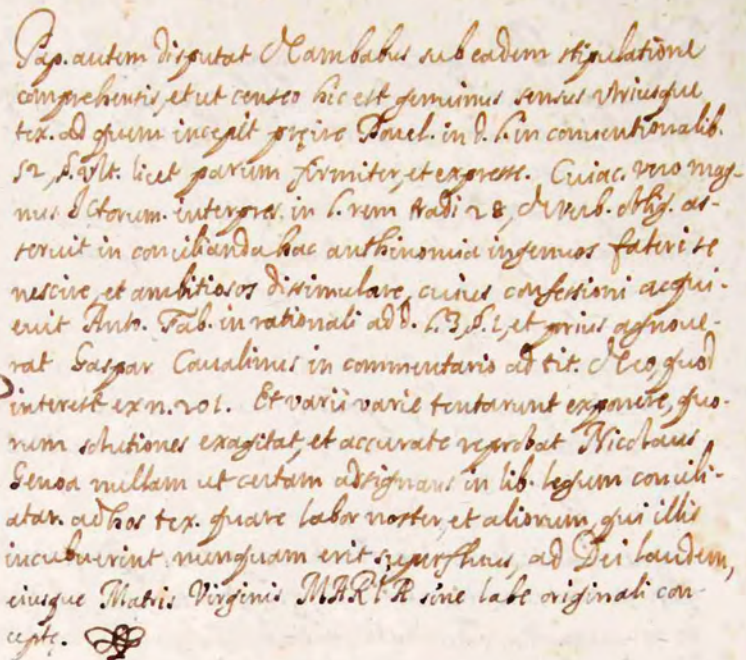 Pap. autem disputat de ambabus sub eadem stipulatione
comprehensis, et ut censeo hic est genuinus sensus utriusque
tex. ad quem incepit pręire Fanel. in d. l. in conventionalib.
52, §. ult. licet parum firmiter, et expresse. Cuiac. vero mag-
nus Dctorum. interpres. in l. rem tradi 28, de verb. oblig. as-
seruit in concilianda hac anthinomia ingenuos fateri se
nescire, et ambitiosos dissimulare, cuius confessioni acqui-
evit Anto. Fab. in rationali ad d. l. 3, §. 1, et prius agnove-
rat Gaspar Cavalinus in commentario ad tit. de eo, quod
interest ex n. 201. Et varii varie tentarunt exponere, quo-
rum solutiones exagitat, et accurate reprobat Nicolaus
Genoa nullam ut certam adsignans in lib. legum concili-
atar. ad hos tex. quare labor noster, et aliorum, qui illis
incubuerint nunquam erit superfluus, ad Dei laudem,
eiusque Matris Virginis MARIÆ sine labe originali con-
ceptę.